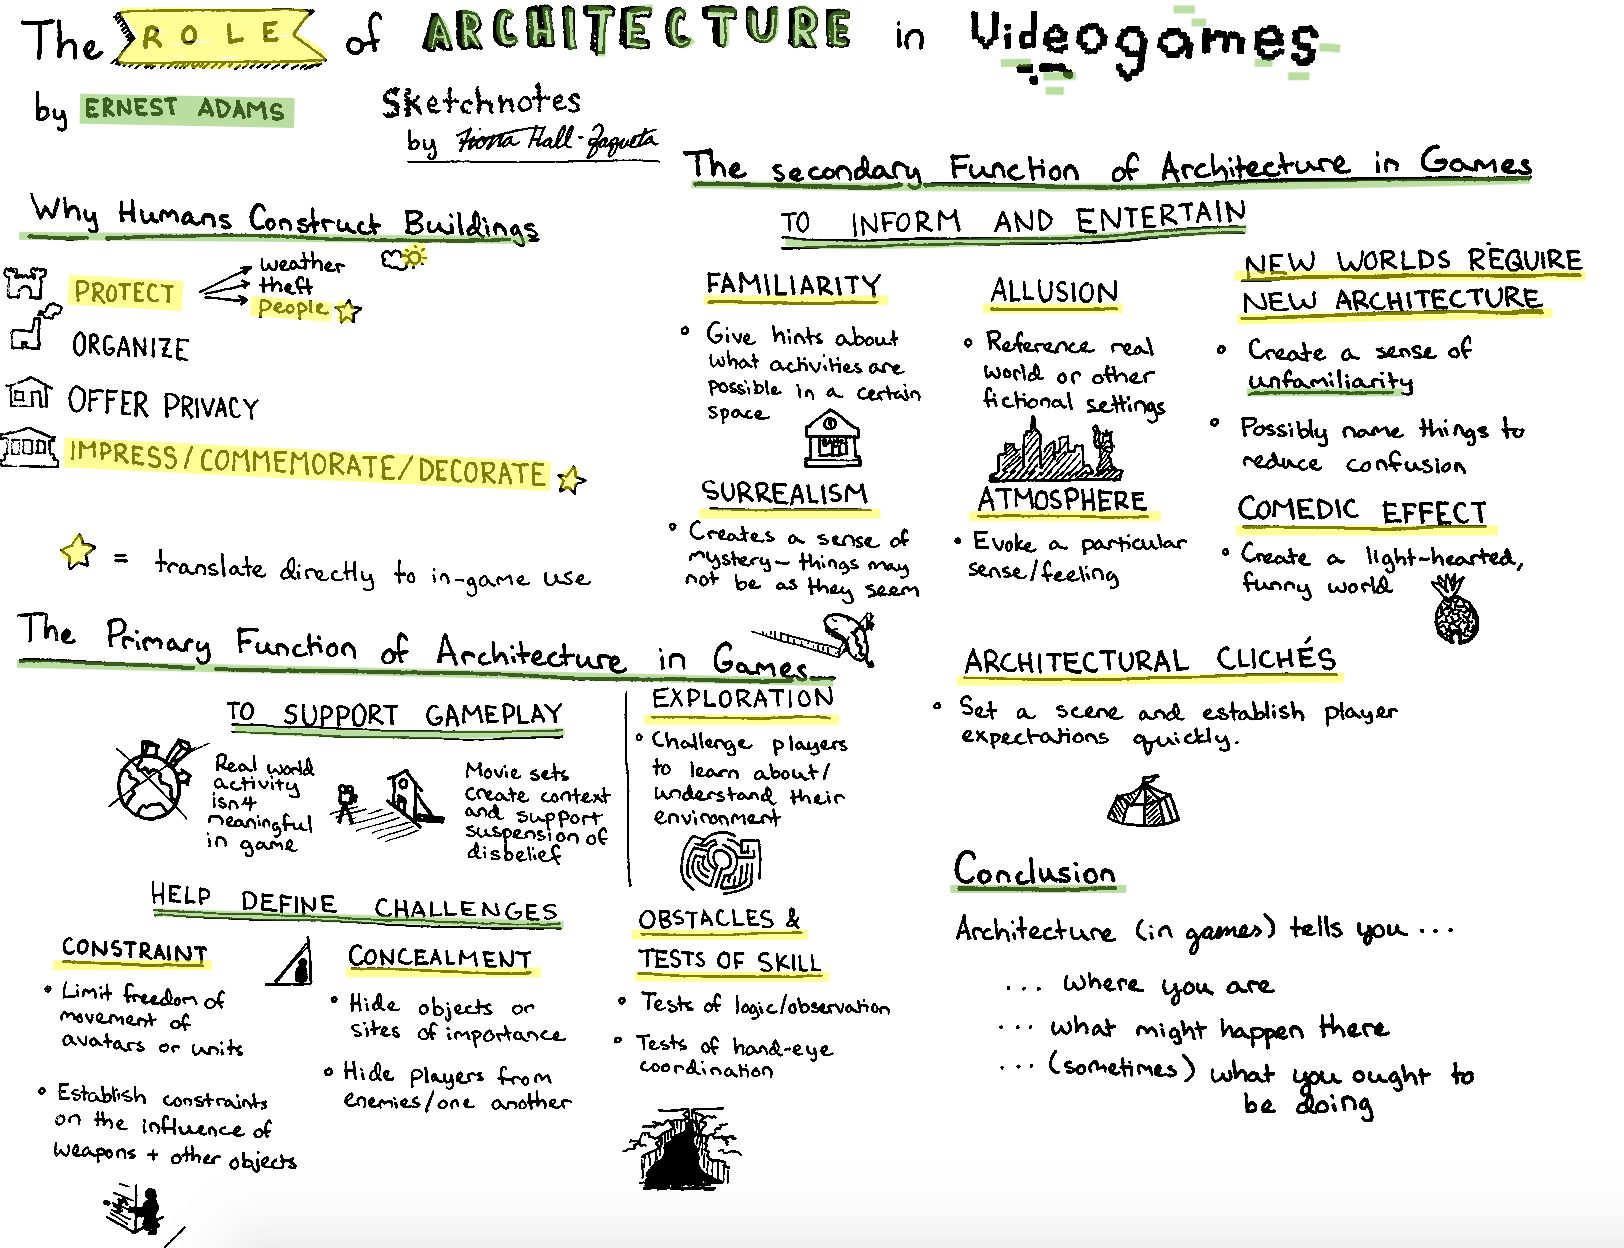 The ROLE of ARCHITECTURE in Videogames
by ERNEST ADAMS
Sketchnotes
by Fiona Hall-Zazueta
Why Humans Construct Buildings
PROTECT
weather
theft
People
ORGANIZE
OFFER PRIVACY
IMPRESS/COMMEMORATE/DECORATE
= translate directly to in-game use
The Primary Function of Architecture in Games
TO SUPPORT GAMEPLAY
Real world
activity
isn't
meaningful
in game
Movie sets
create context
and support
suspension of
disbelief
EXPLORATION
Challenge players
to learn about/
understand their
environment
HELP DEFINE CHALLENGES
CONSTRAINT
Limit freedom of
movement of
avatars or units
Establish constraints
on the influence of
weapons + other objects
CONCEALMENT
Hide objects or
sites of importance
Hide players from
enemies/one another
OBSTACLES &
TESTS OF SKILL
Tests of logic/observation
Tests of hand-eye
coordination
The secondary Function of Architecture in Games
TO INFORM AND ENTERTAIN
FAMILIARITY
Give hints about
what activities are
possible in a certain
space
ALLUSION
Reference real
world or other
fictional settings
NEW WORLDS REQUIRE
NEW ARCHITECTURE
Create a sense of
unfamiliarity
Possibly name things to
reduce confusion
SURREALISM
Creates a sense of
mystery— things may
not be as they seem
ATMOSPHERE
Evoke a particular
sense/feeling
COMEDIC EFFECT
Create a light-hearted,
funny world
ARCHITECTURAL CLICHÉS
Set a scene and establish player
expectations quickly.
Conclusion
Architecture (in games) tells you ...
... where you are
... what might happen there
... (sometimes) what you ought to
be doing